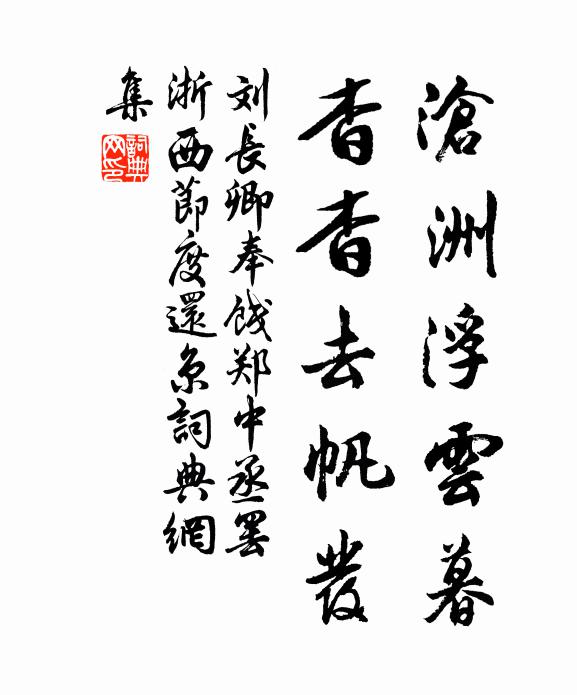 滄洲浮雲暮
杳杳去帆發
刘長卿奉餞郑中丞罢
浙西節度還京詞典網
集
詞典网印